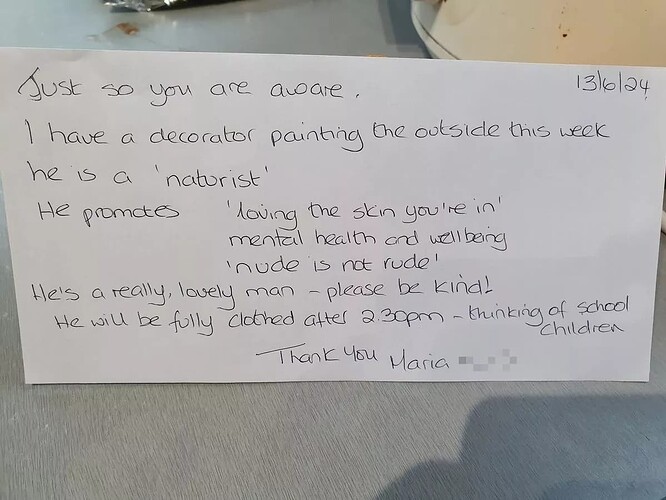 Just so you are aware.
13/6/24
I have a decorator painting the outside this week
he is a 'naturist'
He promotes 'loving the skin you're in'
mental health and wellbeing
'nude is not rude'
He's a really, lovely man - please be kind!
He will be fully clothed after 2.30pm - thinking of school
children
Thank you Maria